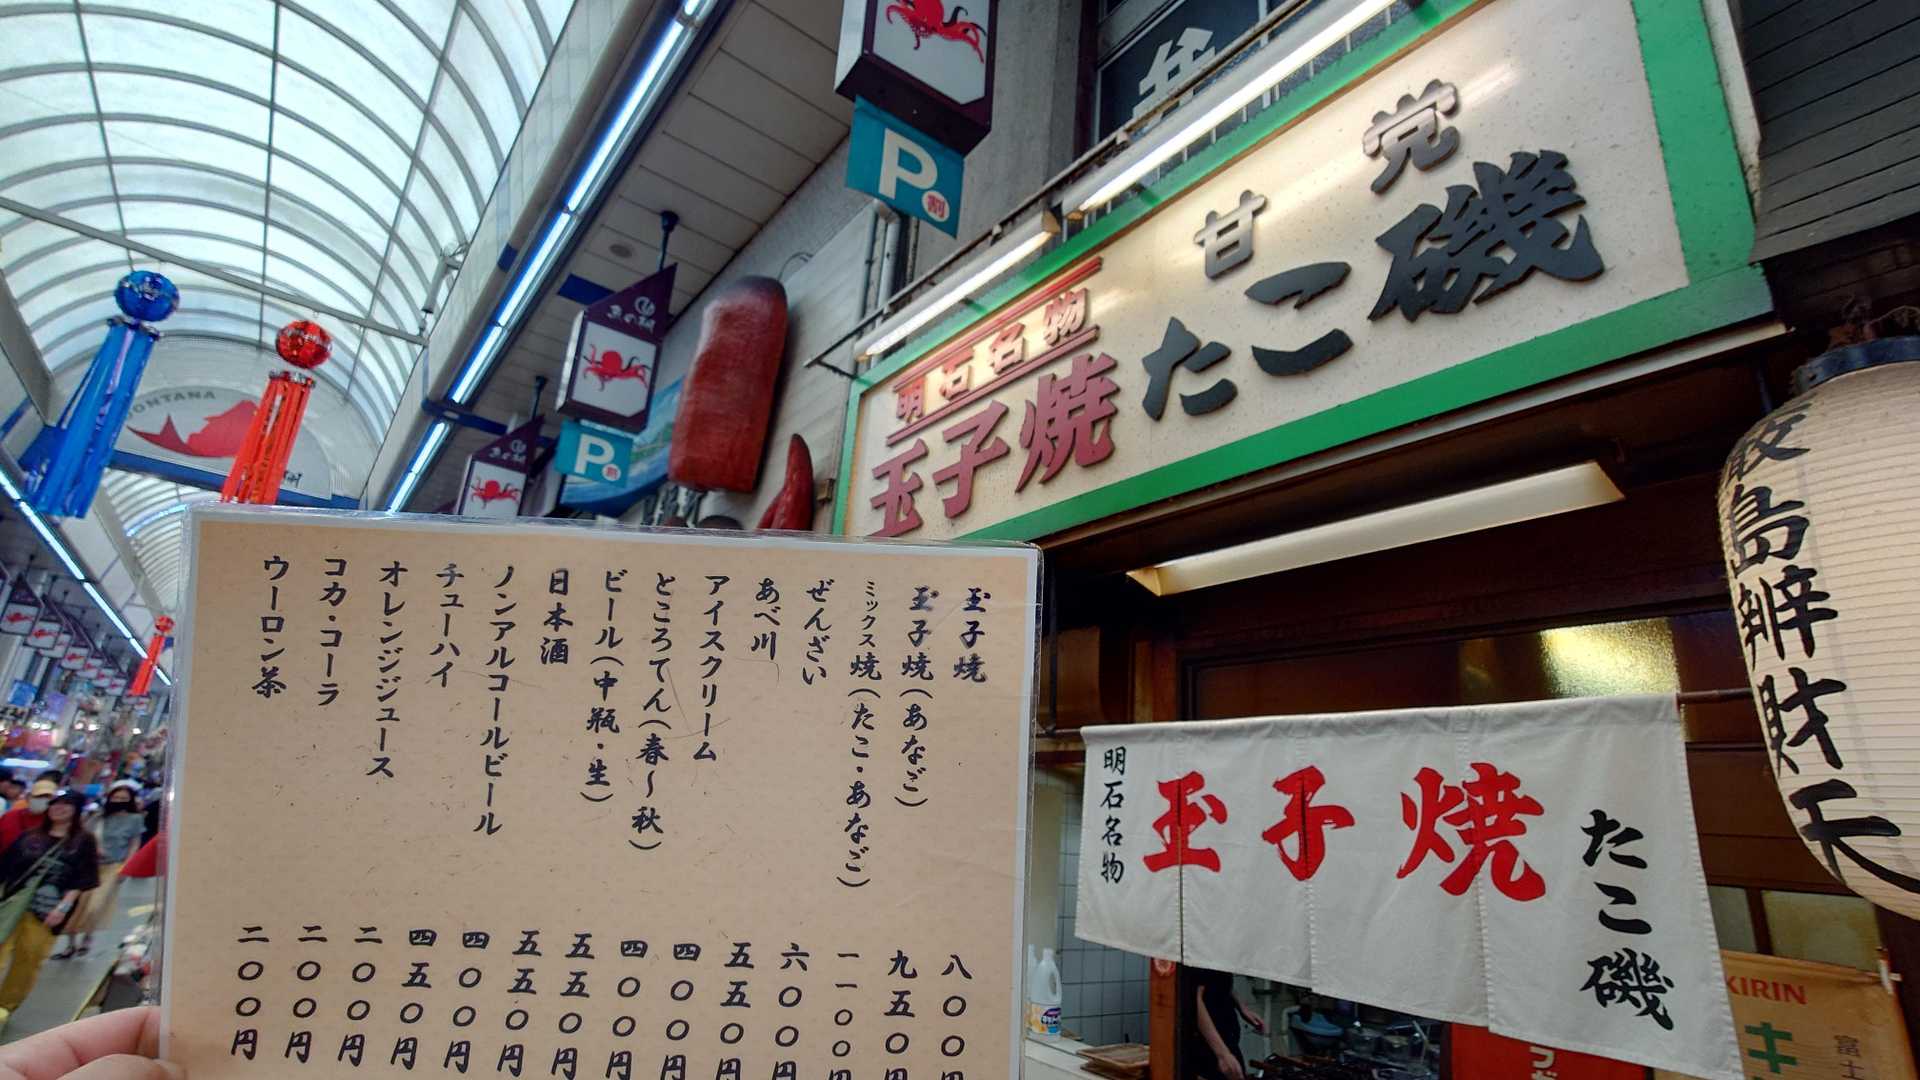 弁
甘党
たこ磯
明石名物
玉子焼
P割
魚の棚
P割
魚の棚
MONTANA
玉子焼 八〇〇円
玉子焼(あなご) 九五〇円
ミックス焼(たこ・あなご) 一一〇〇円
ぜんざい 六〇〇円
あべ川 五五〇円
アイスクリーム 四〇〇円
ところてん(春〜秋) 四〇〇円
ビール(中瓶・生) 五五〇円
日本酒 五五〇円
ノンアルコールビール 四〇〇円
チューハイ 四五〇円
オレンジジュース 二〇〇円
コカ・コーラ 二〇〇円
ウーロン茶 二〇〇円
明石名物
玉子焼
たこ磯
島辨財天
KIRIN
キ
富士